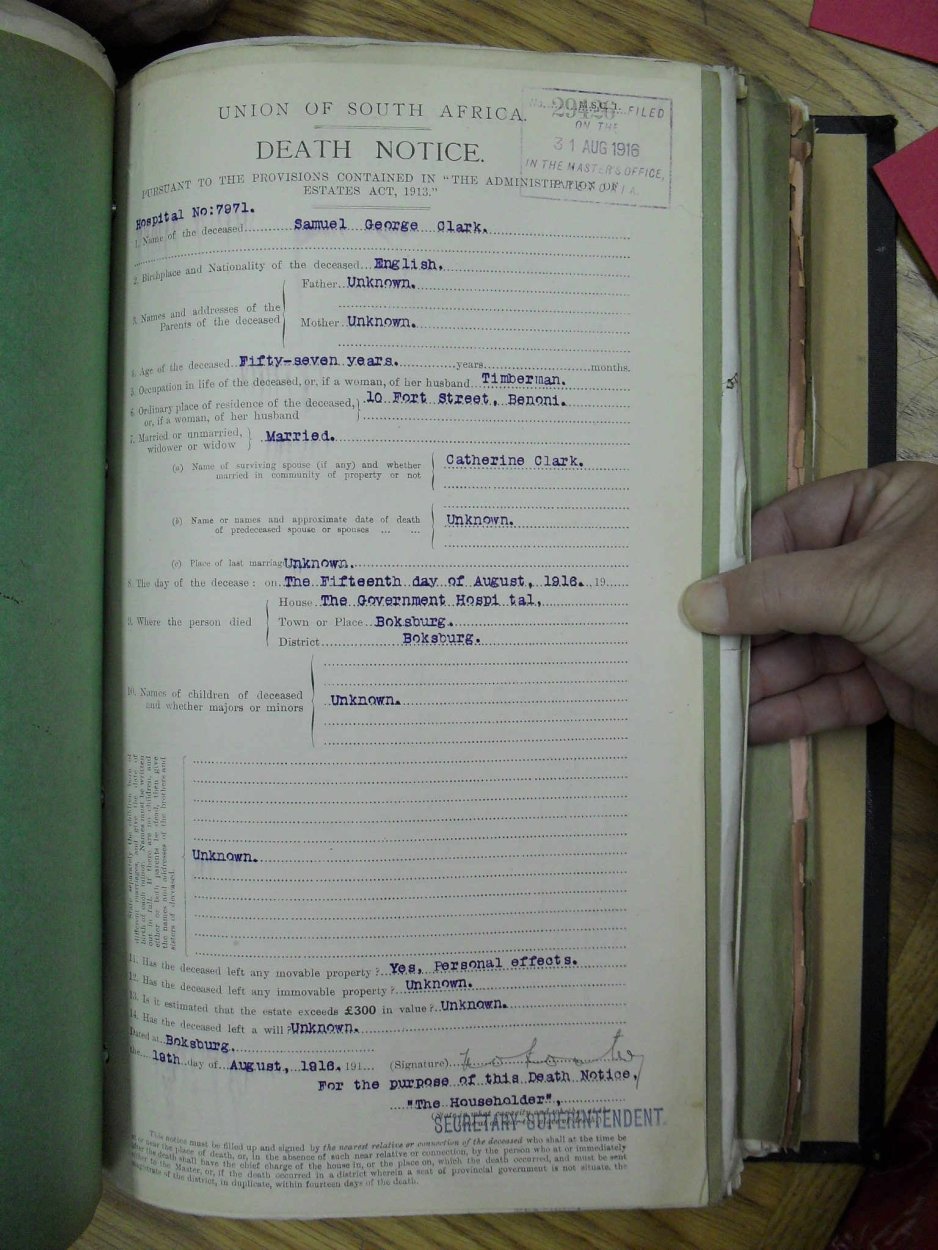 No. 29426 M.S.C. 1. FILED
ON THE
31 AUG 1916
IN THE MASTER'S OFFICE,
UNION OF SOUTH AFRICA.
DEATH NOTICE.
PURSUANT TO THE PROVISIONS CONTAINED IN "THE ADMINISTRATION OF
ESTATES ACT, 1913."
Hospital No:7971.
1. Name of the deceased Samuel George Clark.
2. Birthplace and Nationality of the deceased English.
3. Names and addresses of the Parents of the deceased
Father Unknown.
Mother Unknown.
4. Age of the deceased Fifty-seven years. years months.
5. Occupation in life of the deceased, or, if a woman, of her husband Timberman.
6. Ordinary place of residence of the deceased, 10 Fort Street, Benoni.
or, if a woman, of her husband
7. Married or unmarried, Married.
widower or widow
(a) Name of surviving spouse (if any) and whether Catherine Clark.
married in community of property or not
(b) Name or names and approximate date of death Unknown.
of predeceased spouse or spouses ... ...
(c) Place of last marriage Unknown.
8. The day of the decease: on The Fifteenth day of August, 1916. 19
House The Government Hospi tal,
9. Where the person died Town or Place Boksburg.
District Boksburg.
10. Names of children of deceased Unknown.
and whether majors or minors
State separately the children born of
different marriages, and give the date of
birth of each minor. Names must be written
out in full. If there are no children, and
either or both parents be dead, then give
the names and addresses of the brothers and
sisters of deceased.
Unknown.
11. Has the deceased left any movable property? Yes, Personal effects.
12. Has the deceased left any immovable property? Unknown.
13. Is it estimated that the estate exceeds £300 in value? Unknown.
14. Has the deceased left a will? Unknown.
Dated at Boksburg.
the 19th day of August, 1916. 191 (Signature)
For the purpose of this Death Notice,
"The Householder",
SECRETARY SUPERINTENDENT.
This notice must be filled up and signed by the nearest relative or connection of the deceased who shall at the time be
at or near the place of death, or, in the absence of such near relative or connection, by the person who at or immediately
after the death shall have the chief charge of the house in, or the place on, which the death occurred, and must be sent
either to the Master, or, if the death occurred in a district wherein a seat of provincial government is not situate, the
magistrate of the district, in duplicate, within fourteen days of the death.